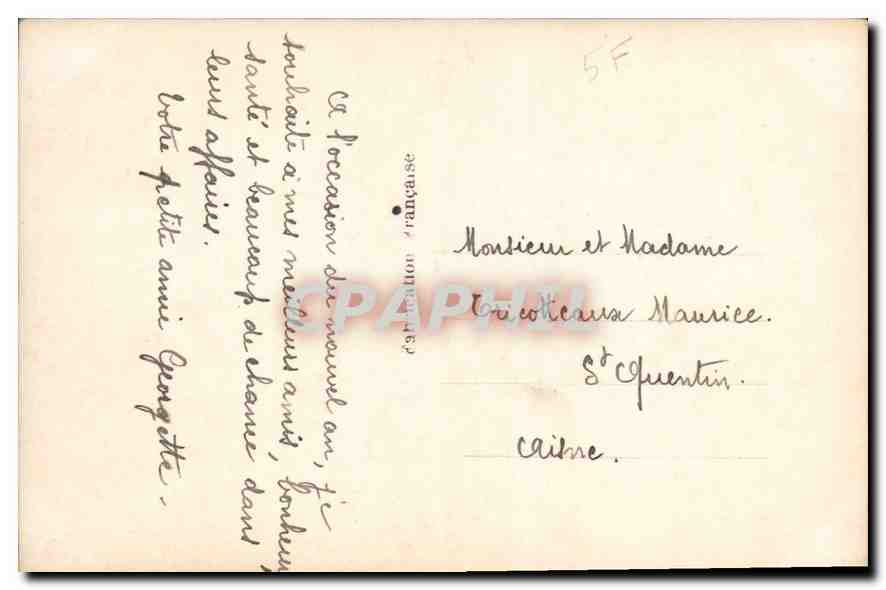 A l'occasion du nouvel an, je
souhaite à mes meilleurs amis, bonheur,
santé et beaucoup de chance dans
leurs affaires.
Votre petite amie Georgette.
Fabrication Française
5F
Monsieur et Madame
Tricotteaux Maurice.
St Quentin.
Aisne.
CPAPHIL